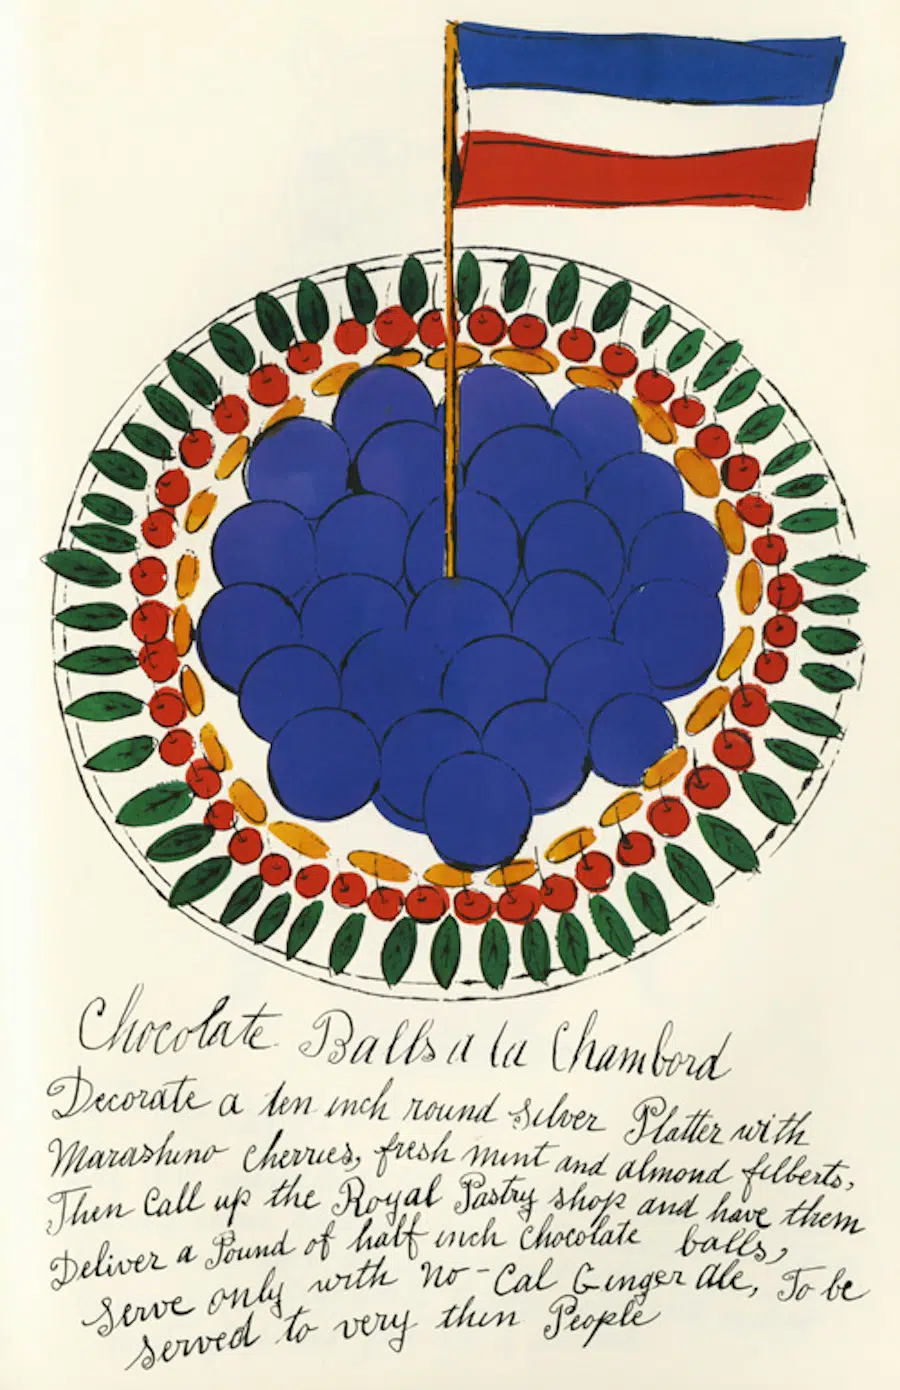 Chocolate Balls a la Chambord
Decorate a ten inch round silver Platter with
Marashino cherries, fresh mint and almond filberts,
Then Call up the Royal Pastry shop and have them
Deliver a Pound of half inch chocolate balls,
Serve only with No-Cal Ginger Ale, To be
served to very thin People